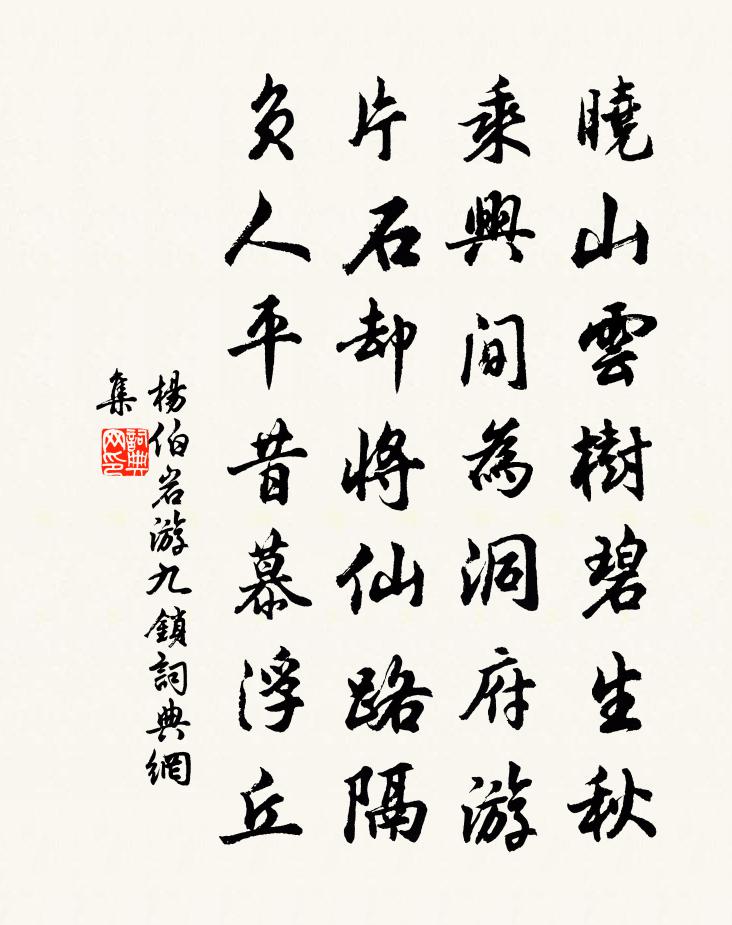 曉山雲樹碧生秋
乘興閒為洞府游
片石却將仙路隔
負人平昔慕浮丘
楊伯岩游九鎖詞典網
集
詞典网印